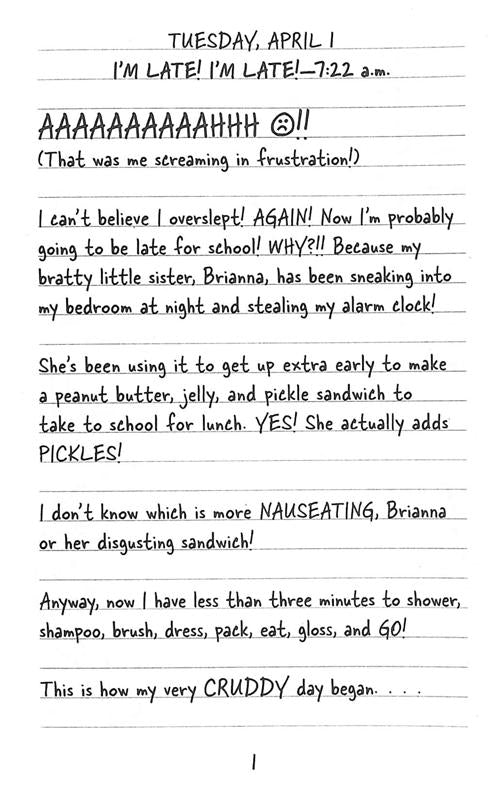 TUESDAY, APRIL 1
I'M LATE! I'M LATE!—7:22 a.m.
AAAAAAAAAAAHHH ☹!!
(That was me screaming in frustration!)
I can't believe I overslept! AGAIN! Now I'm probably
going to be late for school! WHY?!! Because my
bratty little sister, Brianna, has been sneaking into
my bedroom at night and stealing my alarm clock!
She's been using it to get up extra early to make
a peanut butter, jelly, and pickle sandwich to
take to school for lunch. YES! She actually adds
PICKLES!
I don't know which is more NAUSEATING, Brianna
or her disgusting sandwich!
Anyway, now I have less than three minutes to shower,
shampoo, brush, dress, pack, eat, gloss, and GO!
This is how my very CRUDDY day began. . . .
1